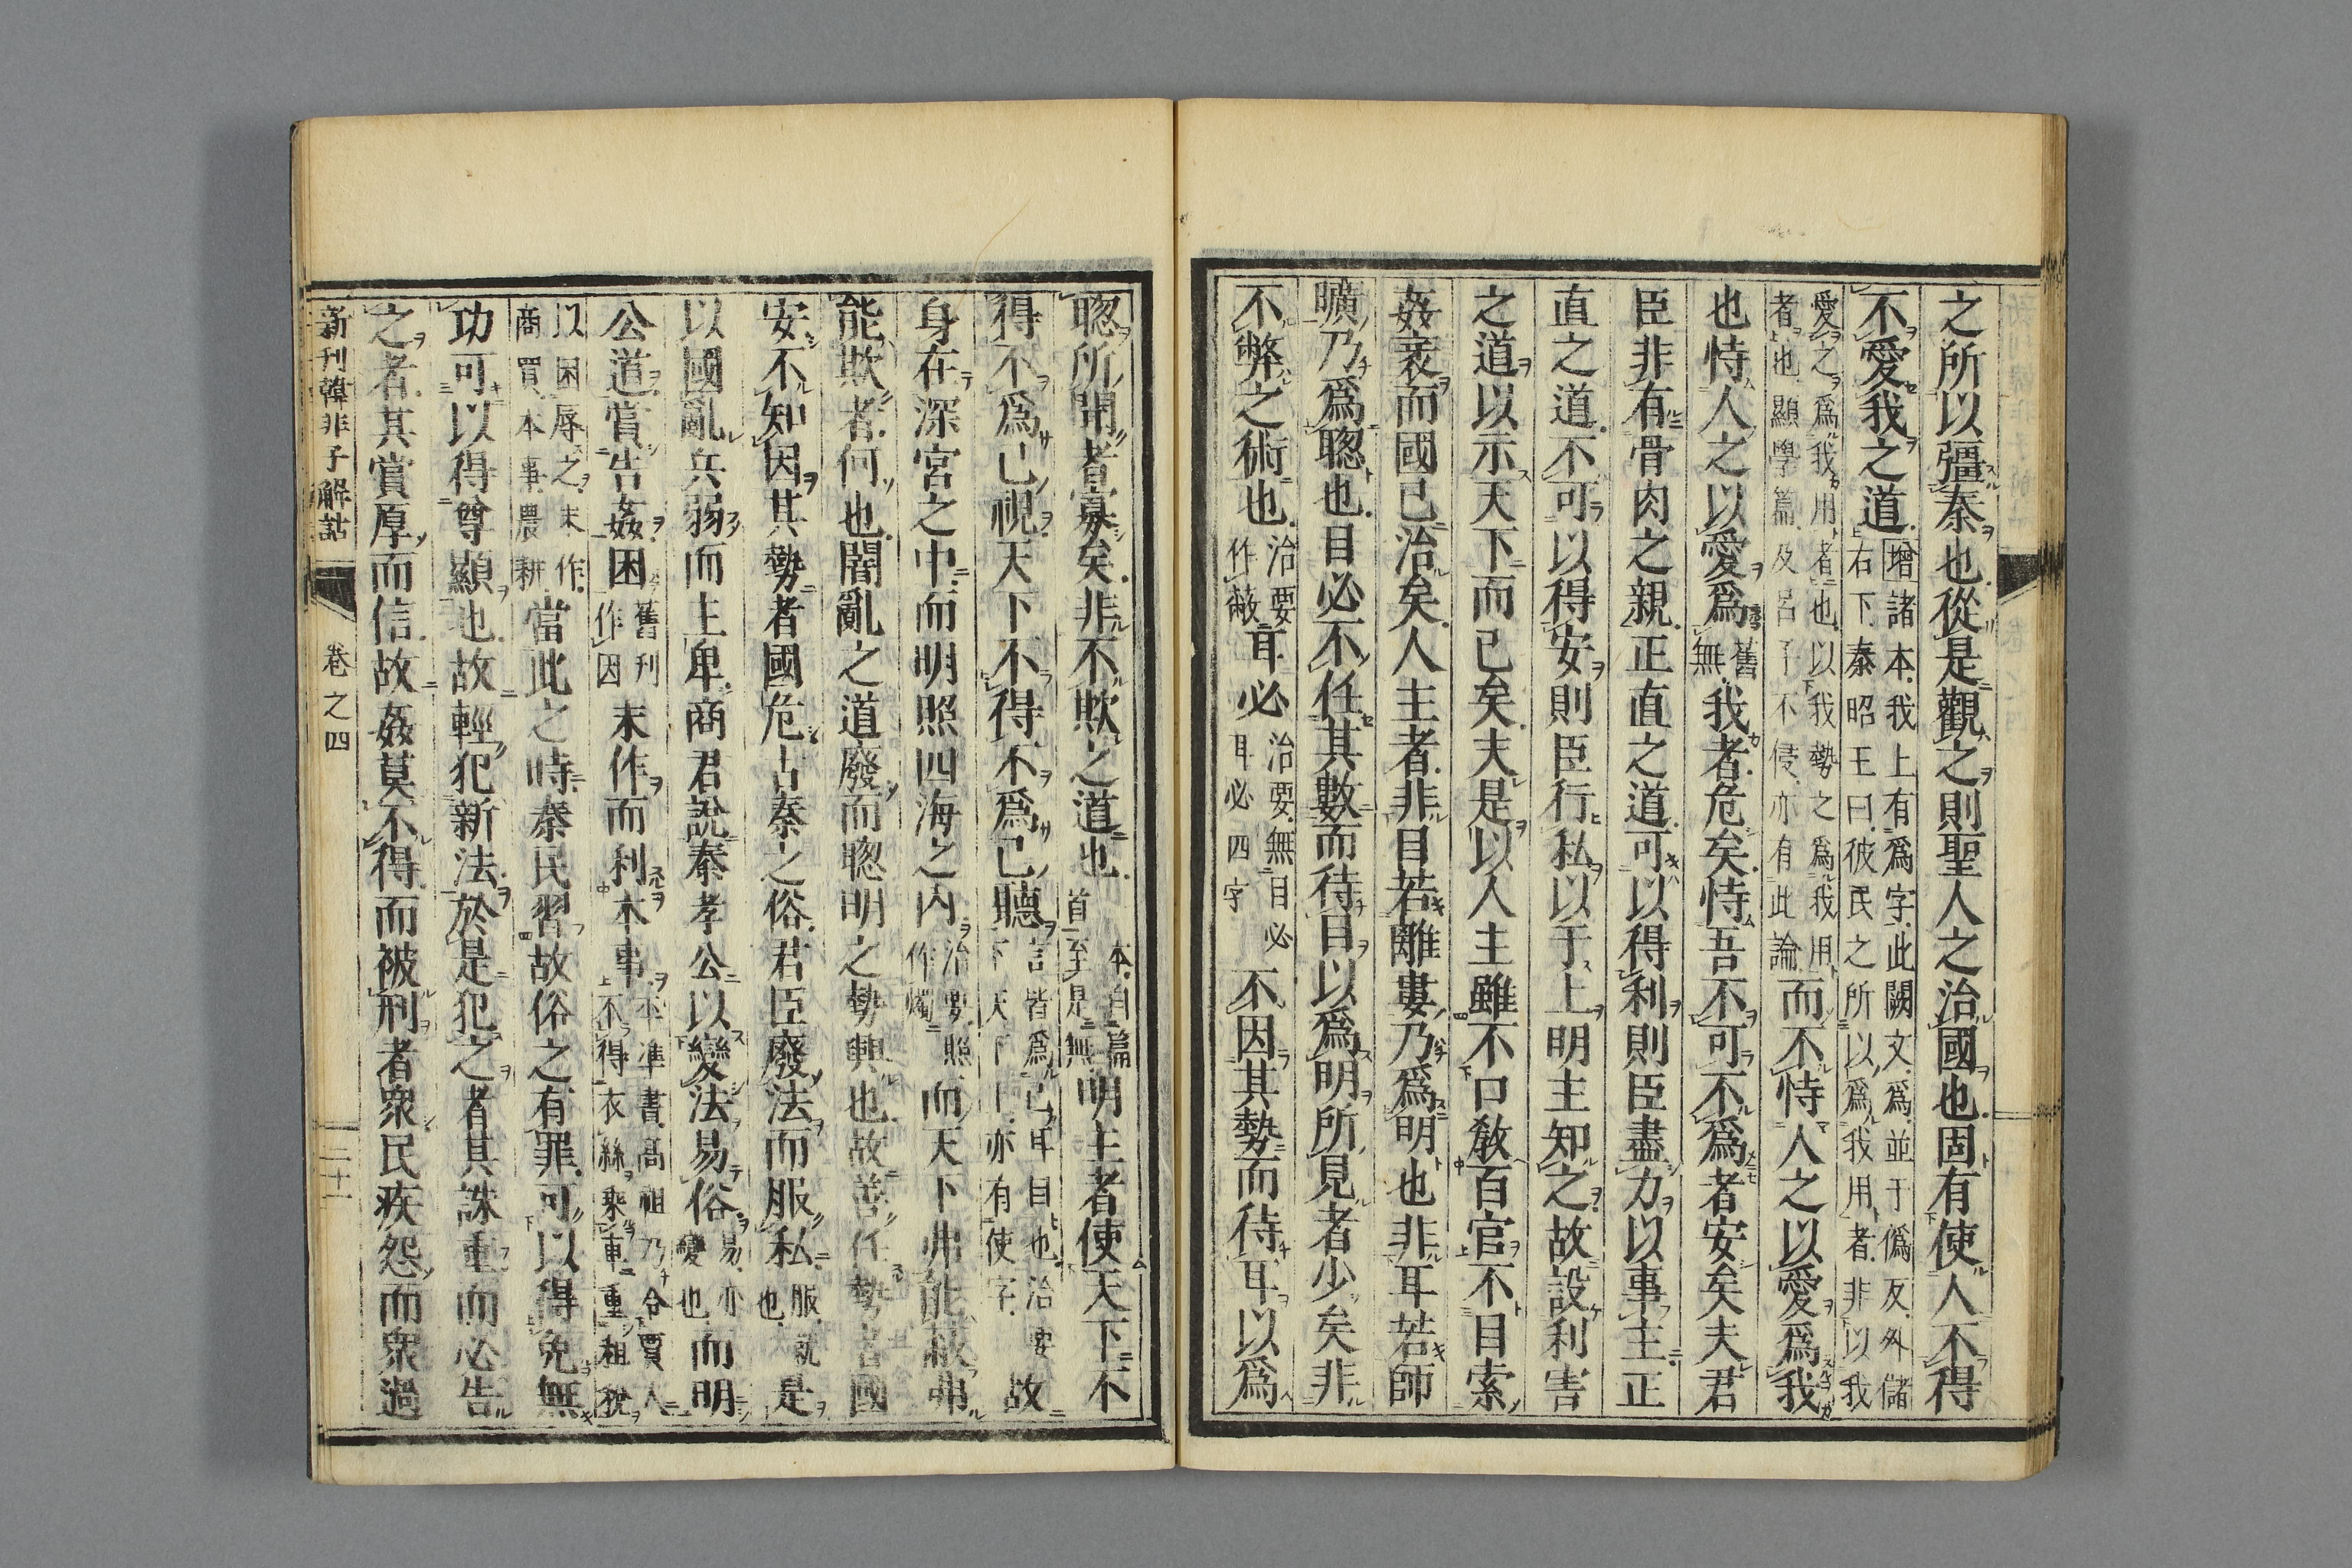 之所以彊秦也從是觀之則聖人之治國也固有使人不得
不愛我之道增諸本我上有爲字此闕文爲並于僞反外儲
右下秦昭王曰彼民之所以爲我用者非以我
愛之爲我用者也以我勢之爲我用
者也顯學篇及呂子不侵亦有此論而不恃人之以愛爲我
也恃人之以愛爲舊無我者危矣恃吾不可不爲者安矣夫君
臣非有骨肉之親正直之道可以得利則臣盡力以事主正
直之道不可以得安則臣行私以于上明主知之故設利害
之道以示天下而已矣夫是以人主雖不口敎百官不目索
姦衺而國已治矣人主者非目若離婁乃爲明也非耳若師
曠乃爲聰也目必不任其數而待目以爲明所見者少矣非
不弊之術也治要作蔽耳必治要無目必耳必四字不因其勢而待耳以爲
聰所聞者寡矣非不欺之道也本自篇首至是無明主者使天下不
得不爲己視天下不得不爲己聽言皆爲己耳目也治要下天下上亦有使字故
身在深宮之中而明照四海之內治要照作燭而天下弗能蔽弗
能欺者何也闇亂之道廢而聰明之勢興也故善任勢者國
安不知因其勢者國危古秦之俗君臣廢法而服私服就也是
以國亂兵弱而主卑商君說秦孝公以變法易俗易亦變也而明
公道賞告姦困舊刊作因末作而利本事平準書高祖乃令賈人不得衣絲乘車重租稅
以困辱之末作商買本事農耕當此之時秦民習故俗之有罪可以得免無
功可以得尊顯也故輕犯新法於是犯之者其誅重而必告
之者其賞厚而信故姦莫不得而被刑者衆民疾怨而衆過
新刊韓非子解詁 卷之四 二十一